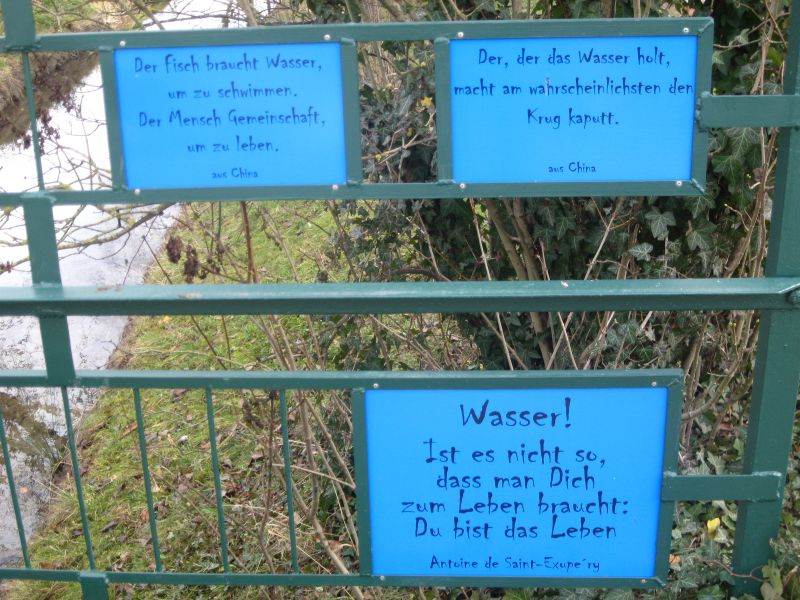 Der Fisch braucht Wasser,
um zu schwimmen.
Der Mensch Gemeinschaft,
um zu leben.
aus China
Der, der das Wasser holt,
macht am wahrscheinlichsten den
Krug kaputt.
aus China
Wasser!
Ist es nicht so,
dass man Dich
zum Leben braucht:
Du bist das Leben
Antoine de Saint-Exupe´ry